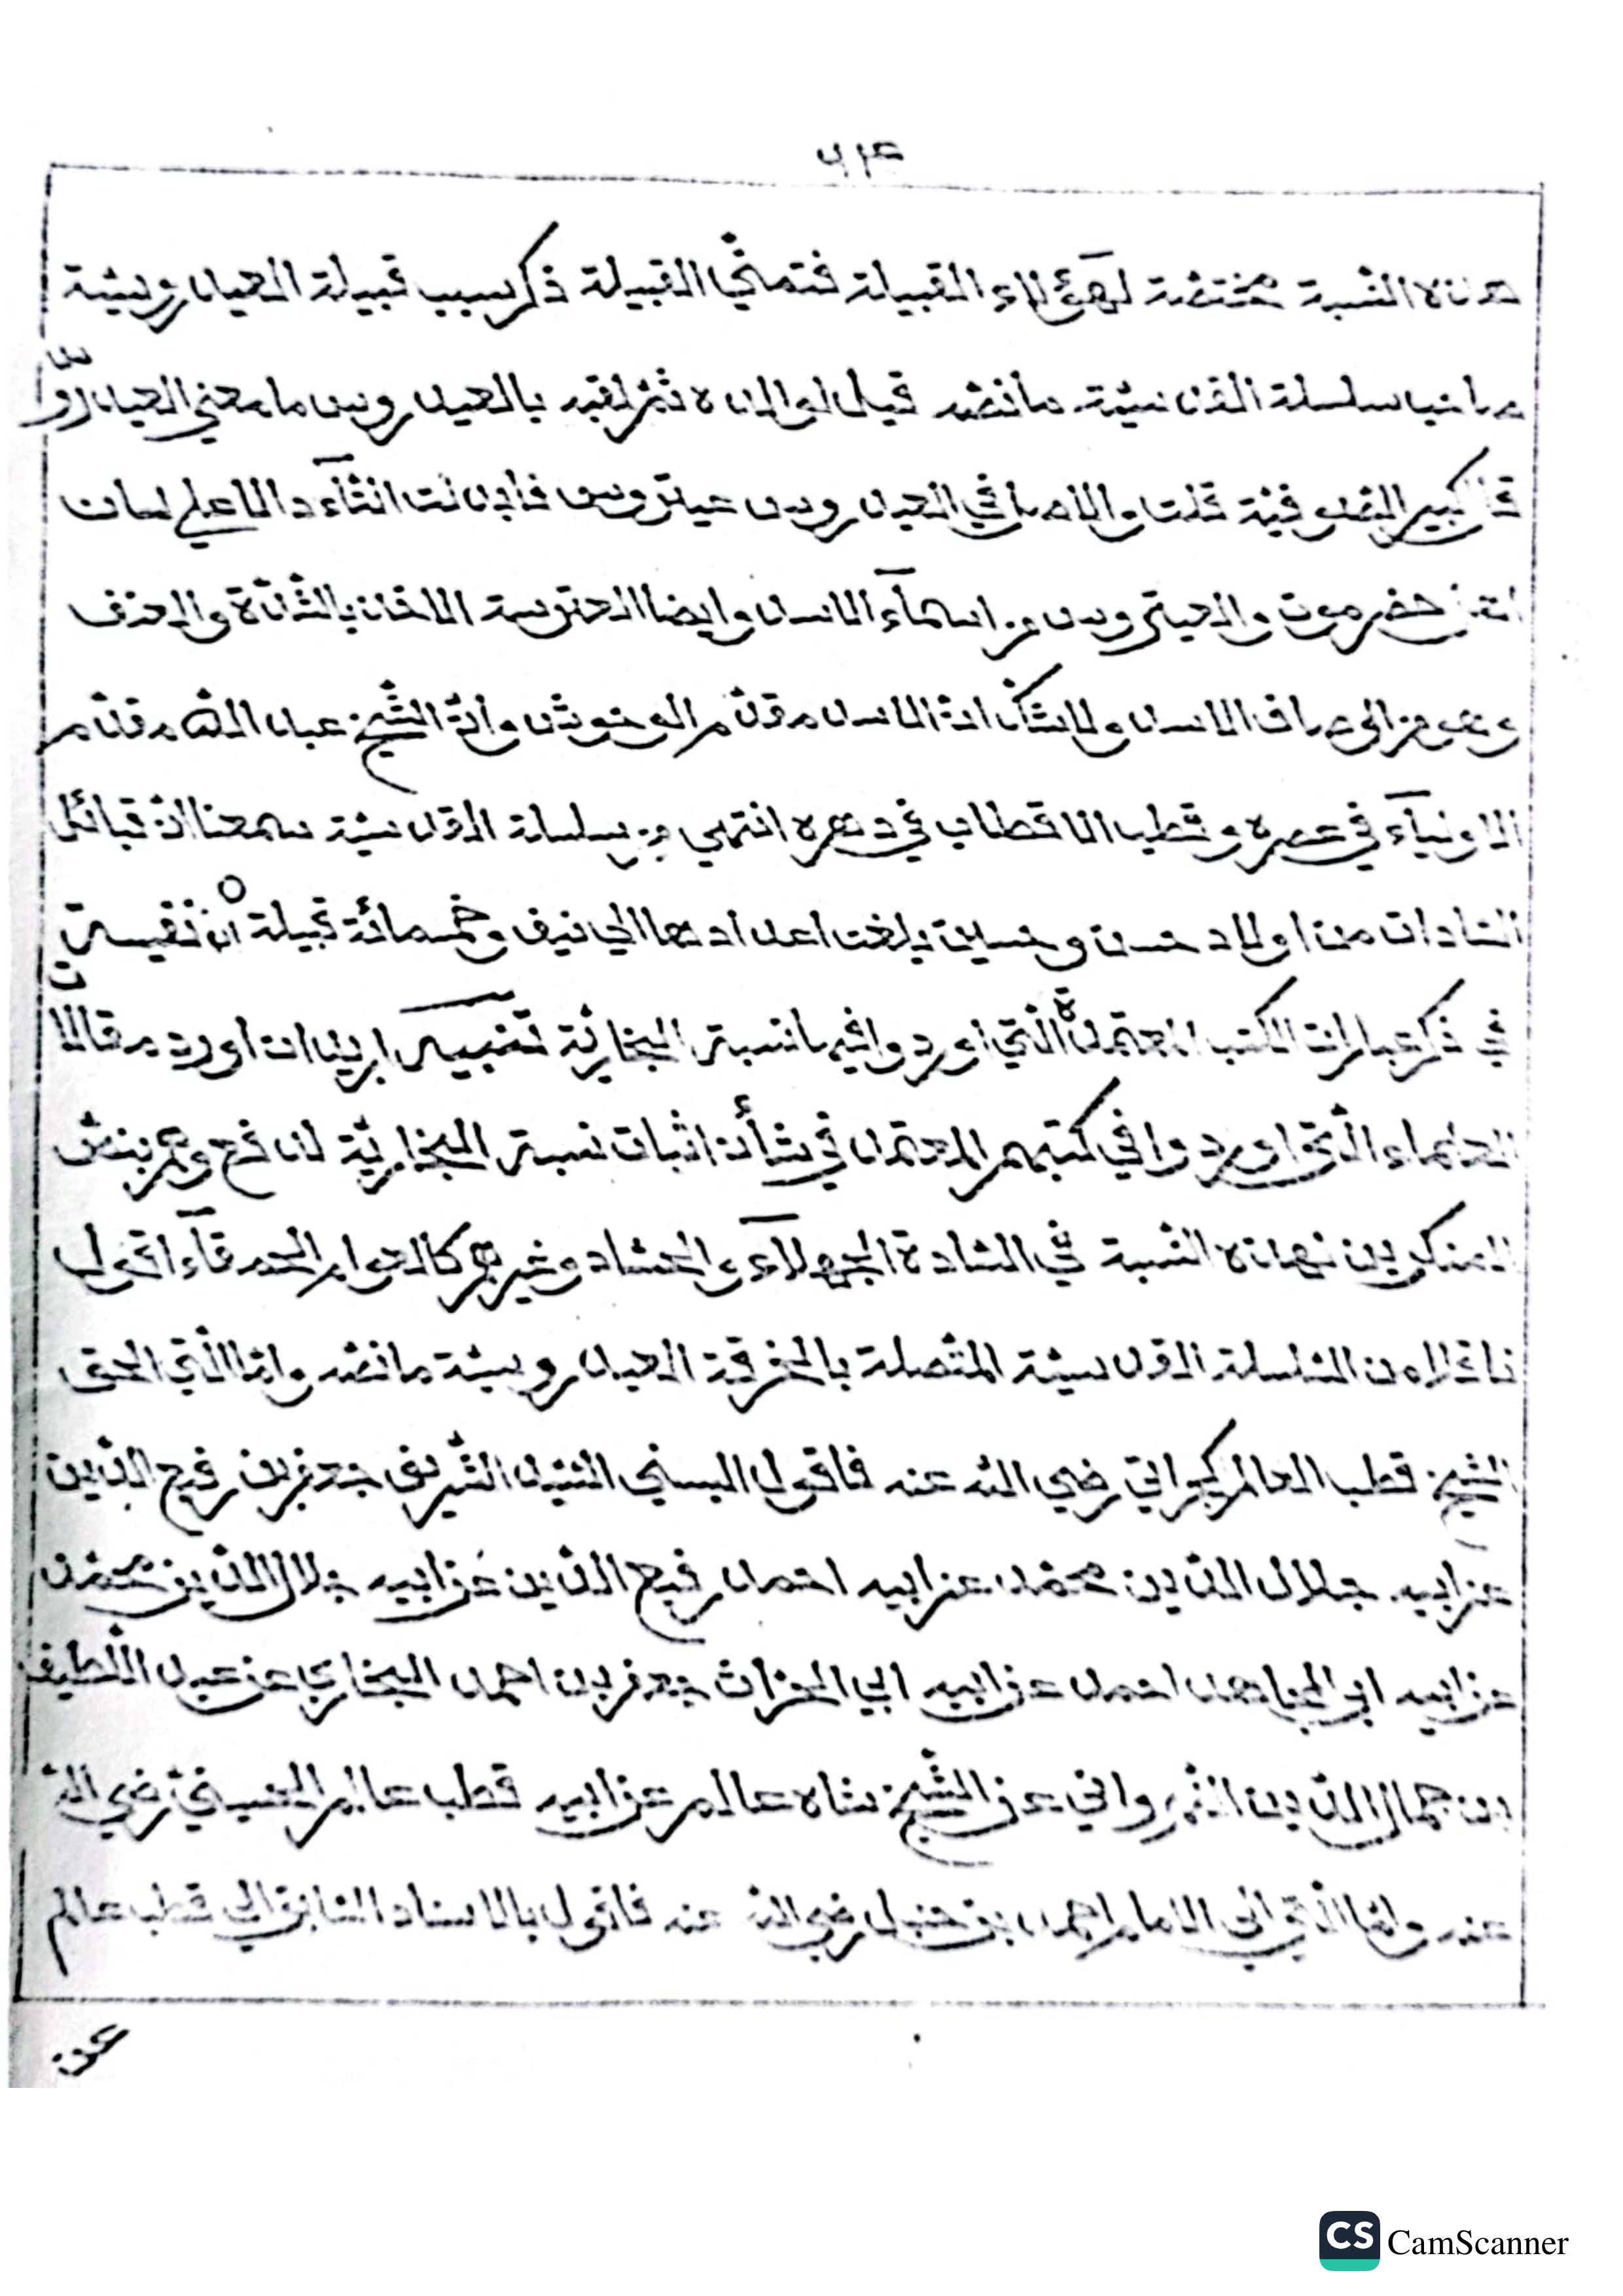 هذه النسبة مختصة لهؤلاء القبيلة فتمشي القبيلة ذكر سبب قبيلة العيدروسية
صاحب سلسلة القدسية ما نصه قيل لوالده ثم لقبه بالعيدروس ما معنى العيدروس
قال كبير الصوفية قلت والاصل في العيدروس عيتروس فابدلت التآء دالا على لسان
اهل حضرموت والعيتروس من اسمآء الاسد وايضا العترسة الاخذ بالشدة والعنف
وهو من اوصاف الاسد ولا شك ان الاسد مقدم الوحوش وان الشيخ عبد الله مقدم
الاوليآء في عصره وقطب الاقطاب في دهره انتهى من سلسلة القدسية سمعنا ان قبائل
السادات من اولاد حسن وحسين بلغت اعدادها الى نيف وخمسمائة قبيلة
في ذكر عبارات الكتب المعتمدة التي اوردوا فيها نسبة البخارية تنبيه اريد ان اورد مقالات
العلماء التي اوردوا في كتبهم المعتمد في شأن اثبات نسبة البخارية
المنكرين لهذه النسبة في السادة الجهلآء والحساد وغيرهم كالعوام الحمقآء اقول
ناقلا من السلسلة القدسية المتصلة بالخرقة العيدروسية ما نصه واما التي الحق
الشيخ قطب العالم كجراتي رضي الله عنه فاقول البسني السيد الشريف جعفر بن رفيع الدين
عن ابيه جلال الدين محمد عن ابيه احمد رفيع الدين عن ابيه جلال الدين محمد
عن ابيه ابي المجاهد احمد عن ابيه ابي الخزان جعفر بن احمد البخاري عن عبد اللطيف
بن جمال الدين النهرواني عن الشيخ شاه عالم عن ابيه قطب عالم الحسيني رضي الله
عنه واما التي الى الامام احمد بن حنبل رضي الله عنه فاقول بالاسناد السابق الى قطب عالم
عن
CS CamScanner